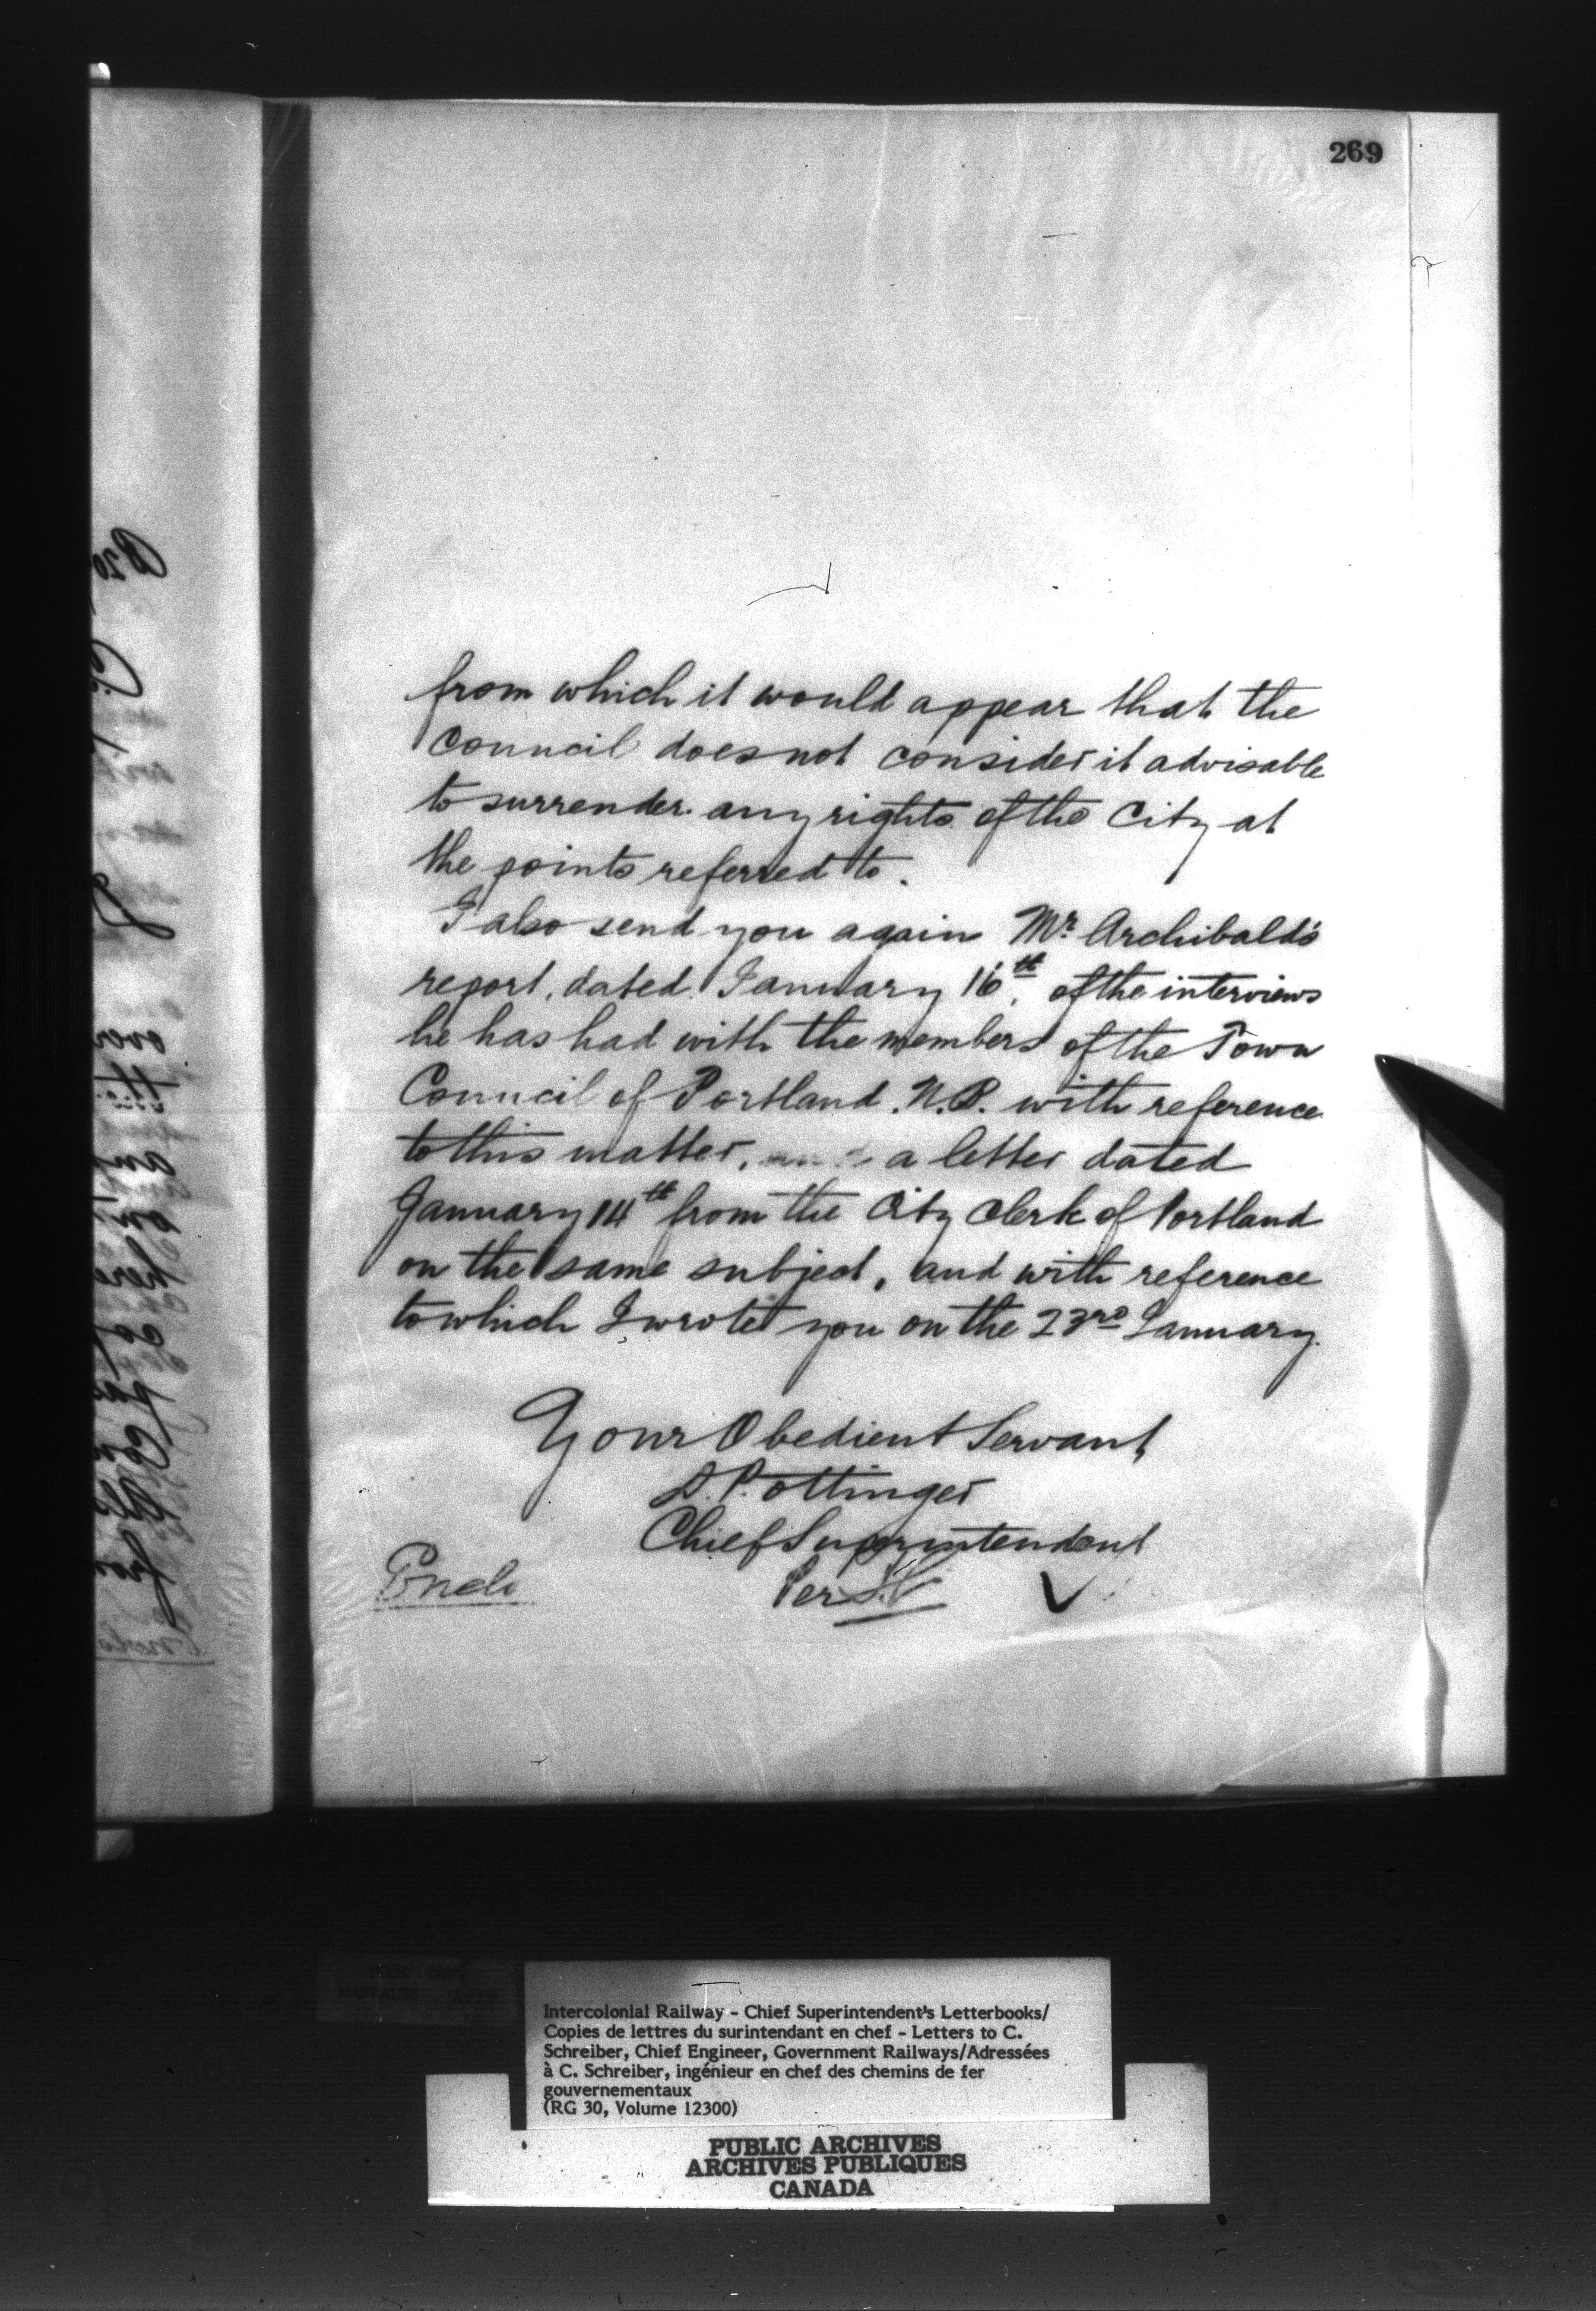 269
from which it would appear that the
Council does not consider it advisable
to surrender any rights of the City at
the points referred to.
I also send you again Mr. Archibald's
report, dated January 16th, of the interviews
he has had with the members of the Town
Council of Portland. N.B. with reference
to this matter, and a letter dated
January 14th from the City Clerk of Portland
on the same subject, and with reference
to which I wrote you on the 23rd January.
Your Obedient Servant
D. Pottinger
Chief Superintendent
Per
Encls
Intercolonial Railway - Chief Superintendent's Letterbooks/
Copies de lettres du surintendant en chef - Letters to C.
Schreiber, Chief Engineer, Government Railways/Adressées
à C. Schreiber, ingénieur en chef des chemins de fer
gouvernementaux
(RG 30, Volume 12300)
PUBLIC ARCHIVES
ARCHIVES PUBLIQUES
CANADA